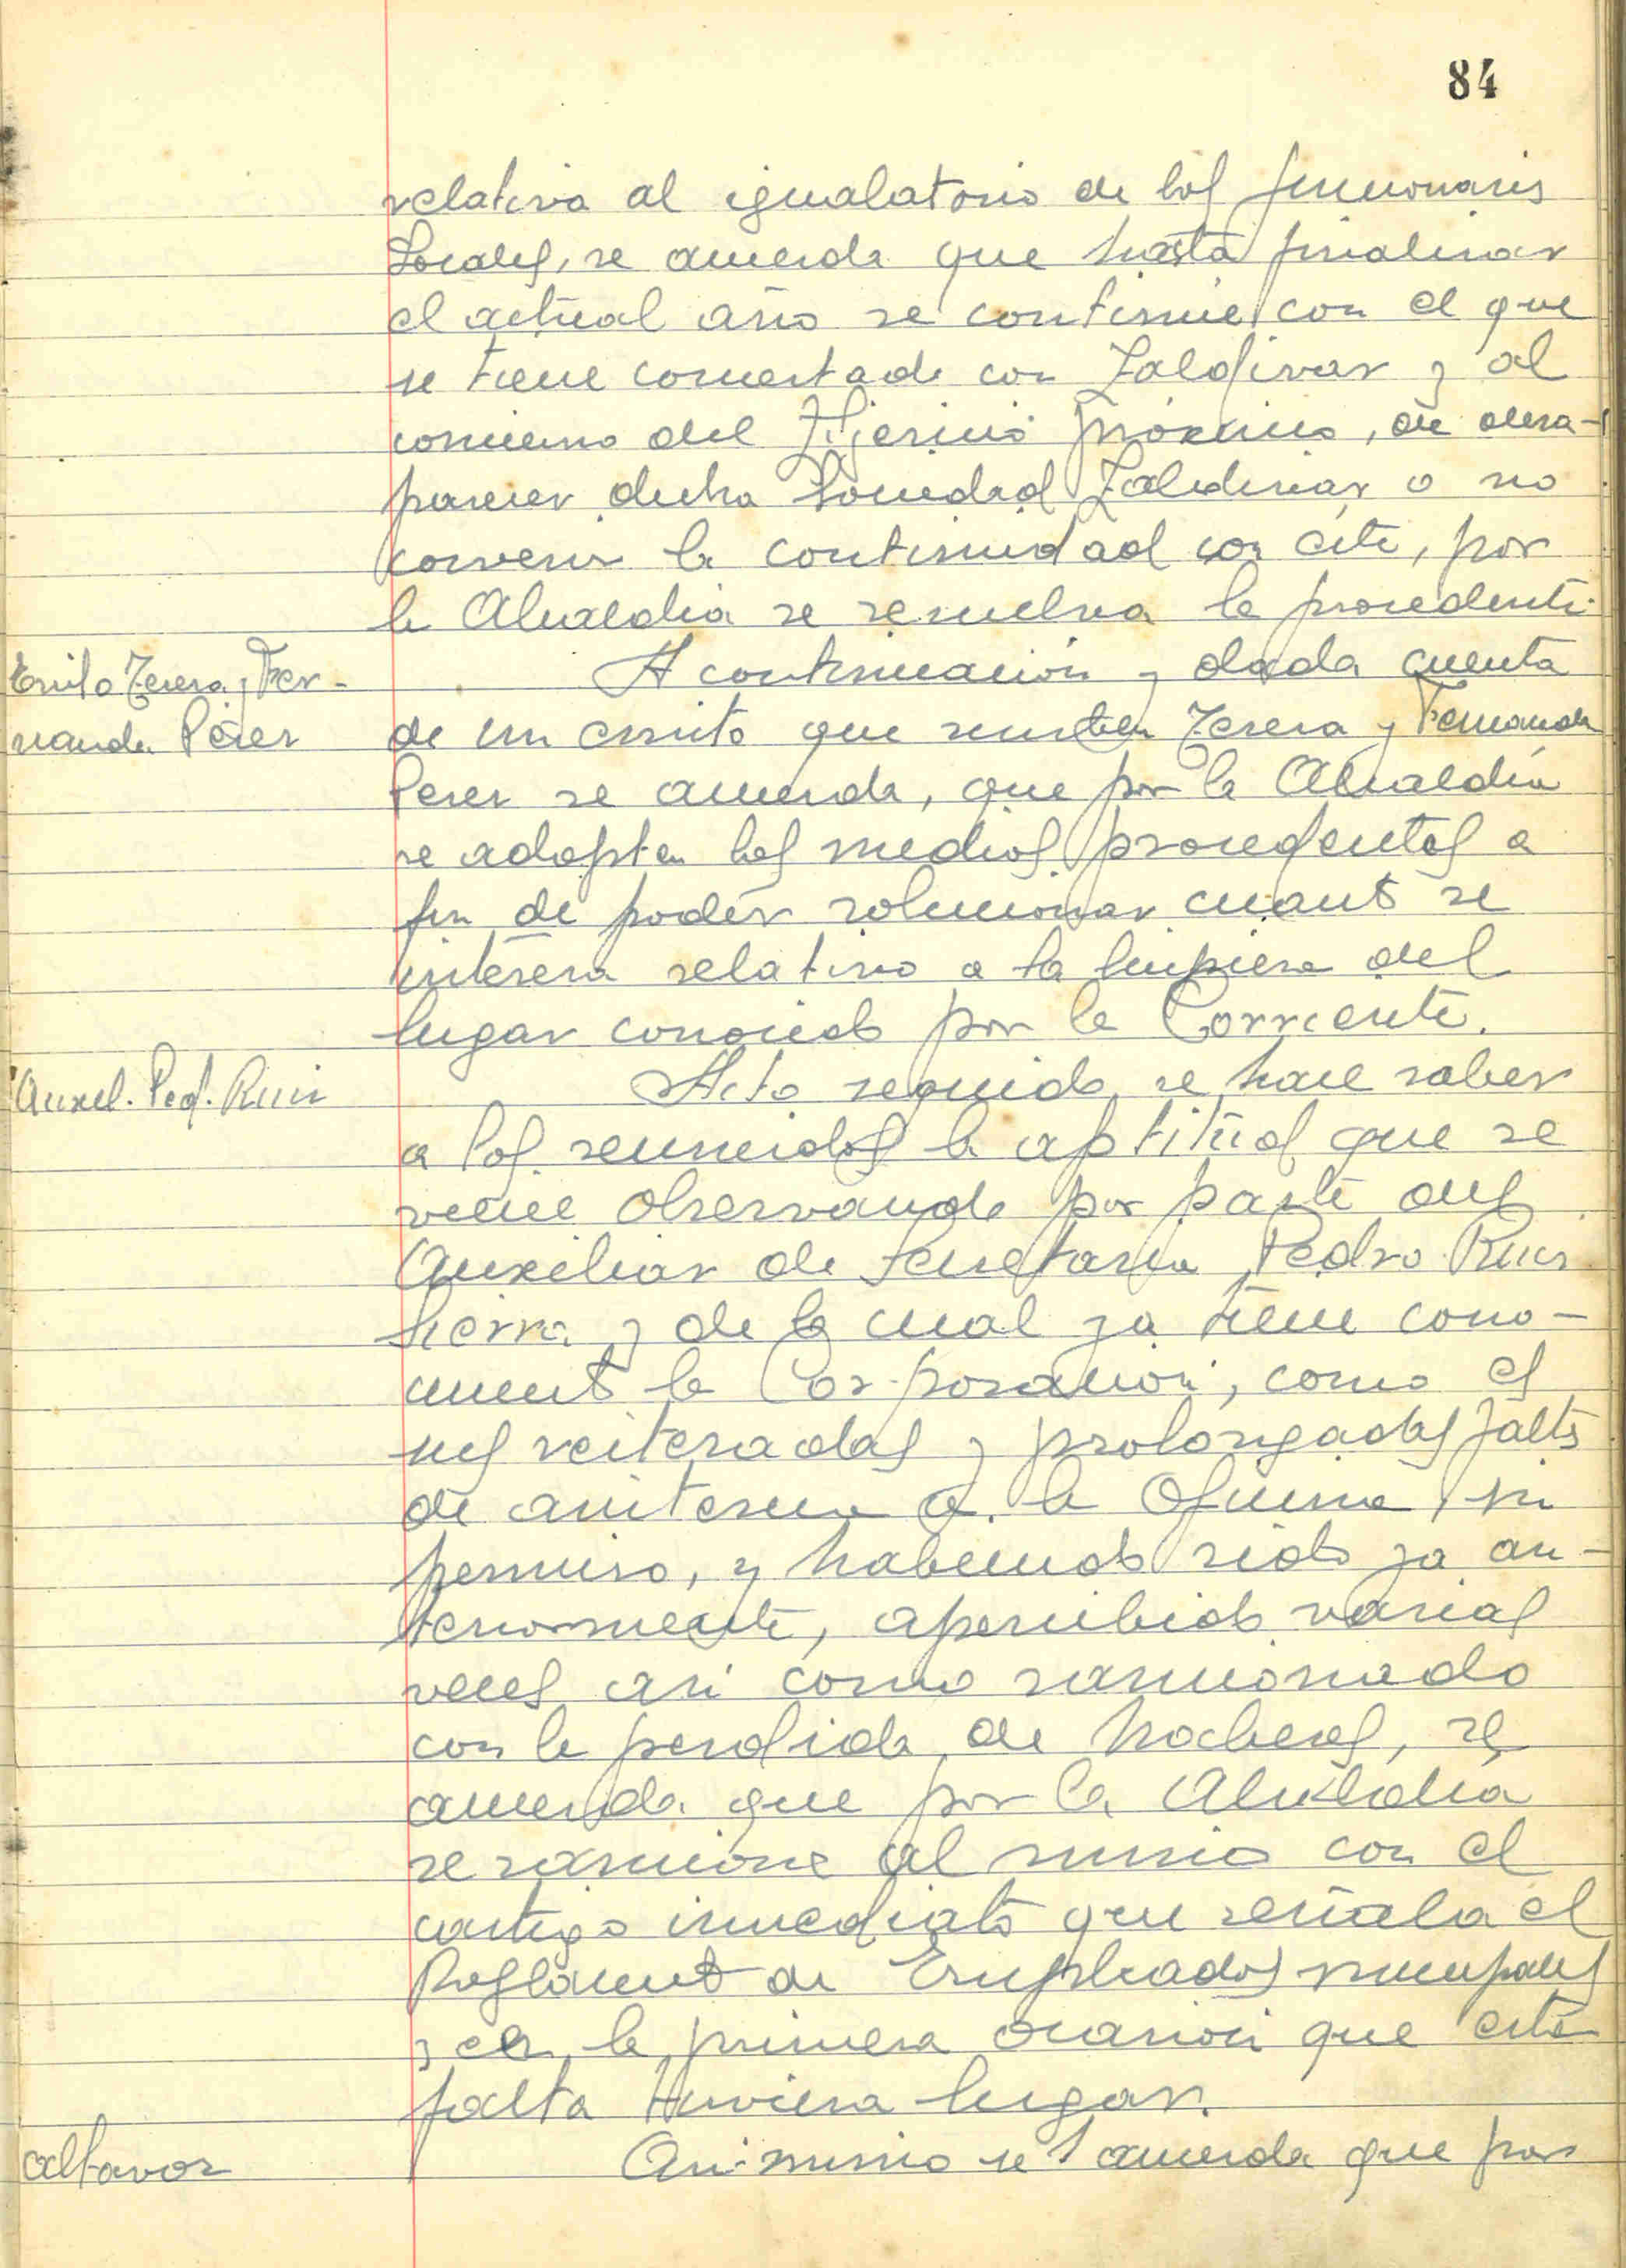 84
relativa al igualatorio de los funcionarios
Locales, se acuerda que hasta finalizar
el actual año se continúe con el que
se tiene concertado con Zaldivar y al
comienzo del Ejercicio próximo, de desa-
parecer dicha Sociedad Zaldivar o no
convenir la continuidad con éste, por
la Alcaldia se resuelva lo procedente.
Escrito Teresa y Fer-
nanda Pérez
A continuación y dada cuenta
de un escrito que suscriben Teresa y Fernanda
Perez se acuerda, que por la Alcaldía
se adopten los medios procedentes a
fin de poder solucionar cuanto se
interesa relativo a la limpieza del
lugar conocido por la Corriente.
Auxil. Ped. Ruiz
Acto seguido se hace saber
a los reunidos la aptitud que se
viene observando por parte del
Auxiliar de Secretaria Pedro Ruiz
Sierra y de la cual ya tiene cono-
cimento la Corporación, como es
sus reiteradas y prolongadas faltas
de asistencia a la Oficina, sin
permiso, y habiendo sido ya an-
teriormente, apercibido varias
veces asi como sancionado
con la perdida de haberes, se
acuerda que por la Alcaldia
se sancione al mismo con el
castigo inmediato que señala el
Reglamento de Empleados municipales
y en la primera ocasión que esta
falta tuviera lugar.
altavoz
Asi-mismo se acuerda que por